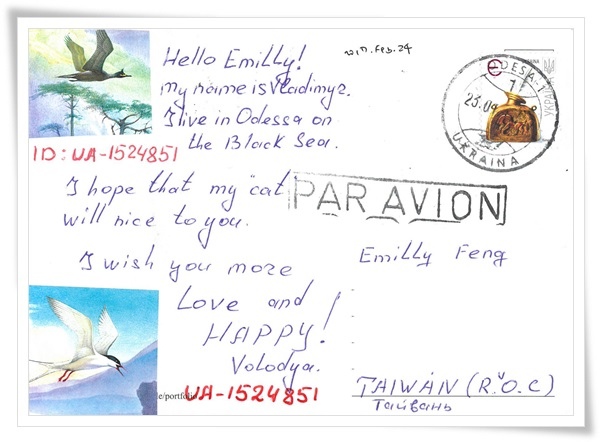 Hello Emilly!
my name is Vladimyr.
I live in Odessa on
the Black Sea.
ID: UA-1524851
I hope that my "cat"
will nice to you.
I wish you more
Love and
HAPPY!
Volodya.
UA-1524851
le/portfolio
Feb. 24
ODESA-1
23.09
УКРАЇНА
UKRAINA
PAR AVION
Emilly Feng
TAIWAN (R.O.C)
Тайвань